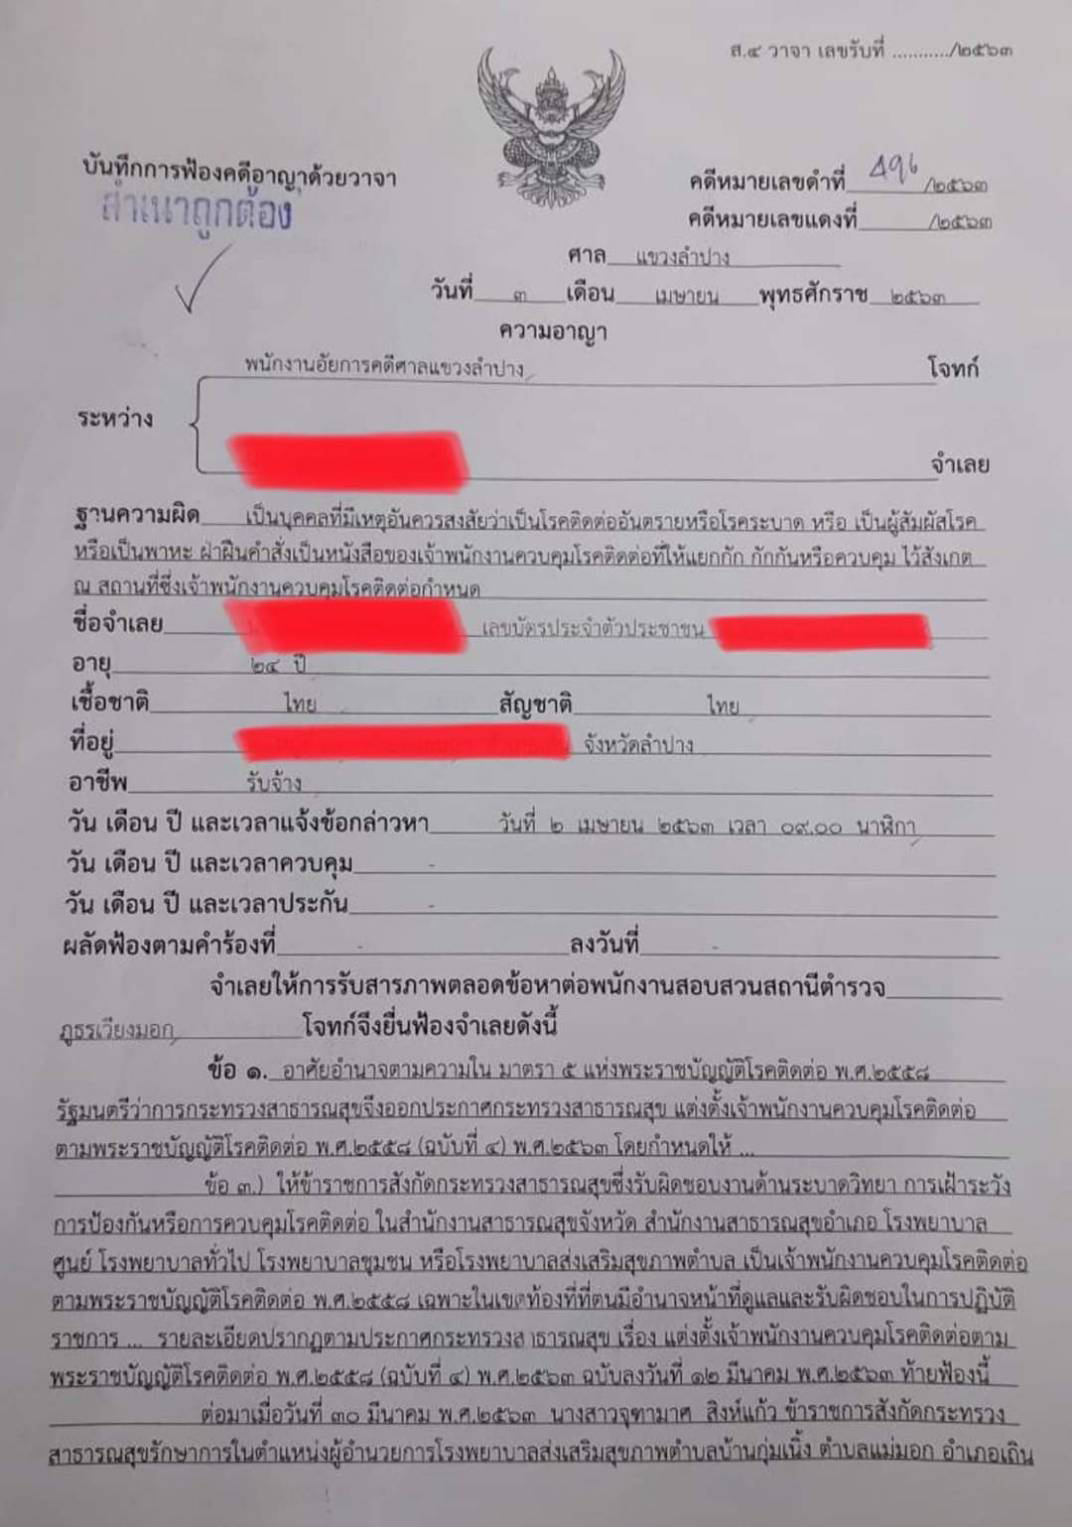 ส.๔ วาจา เลขรับที่ .........../๒๕๖๓
บันทึกการฟ้องคดีอาญาด้วยวาจา
สำเนาถูกต้อง
คดีหมายเลขดำที่ 496 /๒๕๖๓
คดีหมายเลขแดงที่ /๒๕๖๓
ศาล แขวงลำปาง
วันที่ ๓ เดือน เมษายน พุทธศักราช ๒๕๖๓
ความอาญา
พนักงานอัยการคดีศาลแขวงลำปาง โจทก์
ระหว่าง
จำเลย
ฐานความผิด เป็นบุคคลที่มีเหตุอันควรสงสัยว่าเป็นโรคติดต่ออันตรายหรือโรคระบาด หรือ เป็นผู้สัมผัสโรค
หรือเป็นพาหะ ฝ่าฝืนคำสั่งเป็นหนังสือของเจ้าพนักงานควบคุมโรคติดต่อที่ให้แยกกัก กักกันหรือควบคุม ไว้สังเกต
ณ สถานที่ซึ่งเจ้าพนักงานควบคุมโรคติดต่อกำหนด
ชื่อจำเลย เลขบัตรประจำตัวประชาชน
อายุ ๒๔ ปี
เชื้อชาติ ไทย สัญชาติ ไทย
ที่อยู่ จังหวัดลำปาง
อาชีพ รับจ้าง
วัน เดือน ปี และเวลาแจ้งข้อกล่าวหา วันที่ ๒ เมษายน ๒๕๖๓ เวลา ๐๙.๐๐ นาฬิกา
วัน เดือน ปี และเวลาควบคุม -
วัน เดือน ปี และเวลาประกัน -
ผลัดฟ้องตามคำร้องที่ - ลงวันที่ -
จำเลยให้การรับสารภาพตลอดข้อหาต่อพนักงานสอบสวนสถานีตำรวจ
ภูธรเวียงมอก โจทก์จึงยื่นฟ้องจำเลยดังนี้
ข้อ ๑. อาศัยอำนาจตามความใน มาตรา ๕ แห่งพระราชบัญญัติโรคติดต่อ พ.ศ.๒๕๕๘
รัฐมนตรีว่าการกระทรวงสาธารณสุขจึงออกประกาศกระทรวงสาธารณสุข แต่งตั้งเจ้าพนักงานควบคุมโรคติดต่อ
ตามพระราชบัญญัติโรคติดต่อ พ.ศ.๒๕๕๘ (ฉบับที่ ๔) พ.ศ.๒๕๖๓ โดยกำหนดให้ ...
ข้อ ๓.) ให้ข้าราชการสังกัดกระทรวงสาธารณสุขซึ่งรับผิดชอบงานด้านระบาดวิทยา การเฝ้าระวัง
การป้องกันหรือการควบคุมโรคติดต่อ ในสำนักงานสาธารณสุขจังหวัด สำนักงานสาธารณสุขอำเภอ โรงพยาบาล
ศูนย์ โรงพยาบาลทั่วไป โรงพยาบาลชุมชน หรือโรงพยาบาลส่งเสริมสุขภาพตำบล เป็นเจ้าพนักงานควบคุมโรคติดต่อ
ตามพระราชบัญญัติโรคติดต่อ พ.ศ.๒๕๕๘ เฉพาะในเขตท้องที่ที่ตนมีอำนาจหน้าที่ดูแลและรับผิดชอบในการปฏิบัติ
ราชการ ... รายละเอียดปรากฏตามประกาศกระทรวงสาธารณสุข เรื่อง แต่งตั้งเจ้าพนักงานควบคุมโรคติดต่อตาม
พระราชบัญญัติโรคติดต่อ พ.ศ.๒๕๕๘ (ฉบับที่ ๔) พ.ศ.๒๕๖๓ ฉบับลงวันที่ ๑๒ มีนาคม พ.ศ.๒๕๖๓ ท้ายฟ้องนี้
ต่อมาเมื่อวันที่ ๓๐ มีนาคม พ.ศ.๒๕๖๓ นางสาวจุฑามาศ สิงห์แก้ว ข้าราชการสังกัดกระทรวง
สาธารณสุขรักษาการในตำแหน่งผู้อำนวยการโรงพยาบาลส่งเสริมสุขภาพตำบลบ้านกุ่มเนิ้ง ตำบลแม่มอก อำเภอเถิน